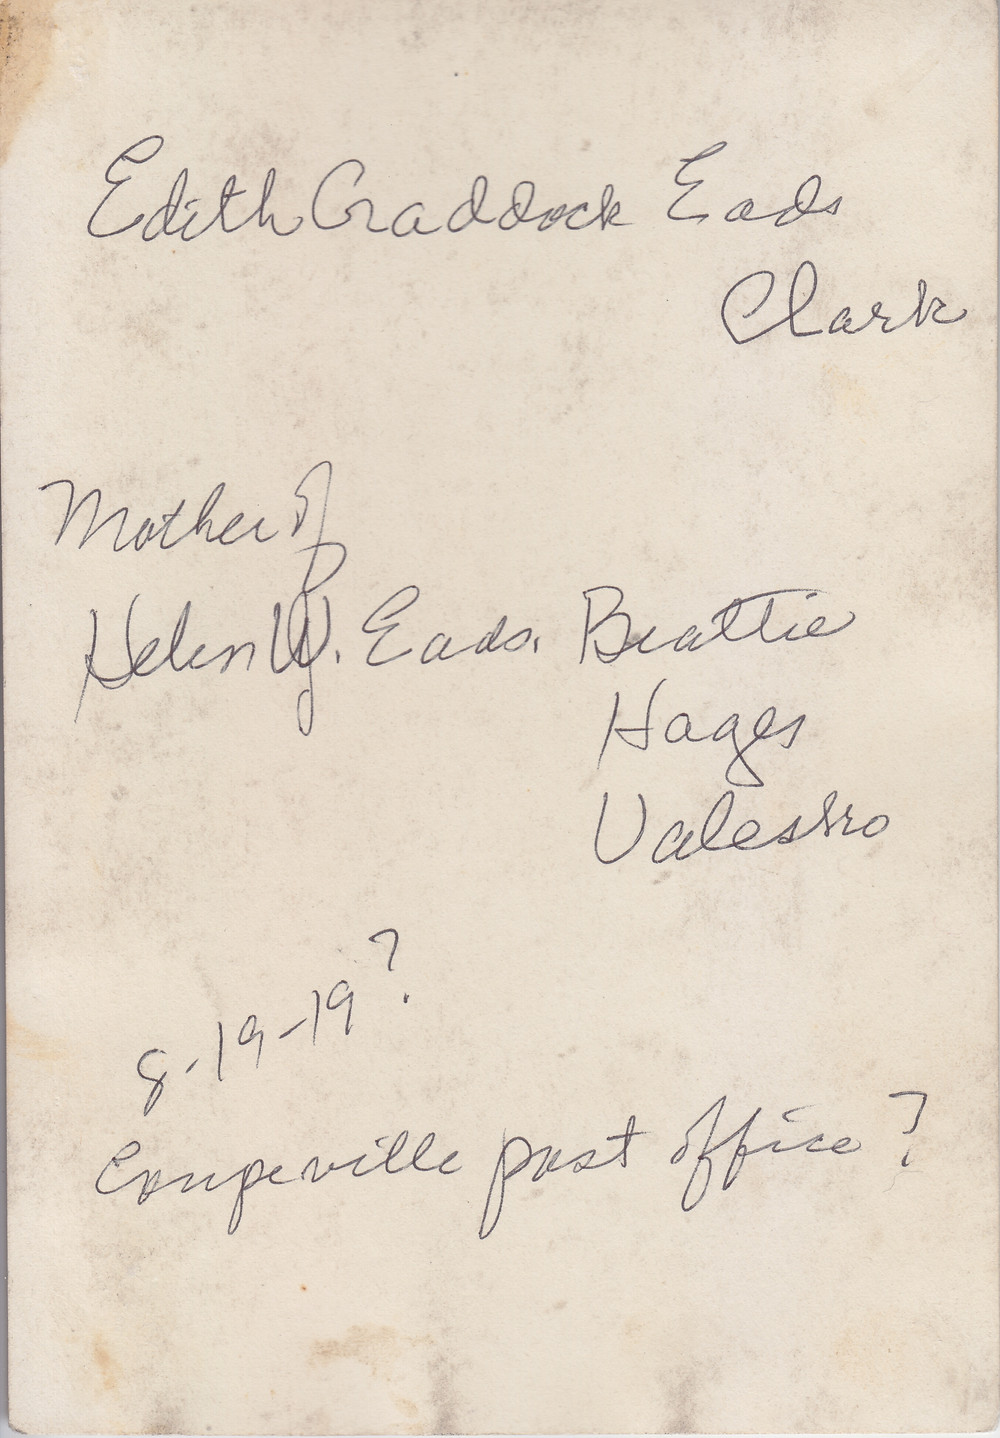 Edith Craddock Eads
Clark
Mother of
Helen W. Eads. Beattie
Hages
8-19-19?
Coupeville post office?